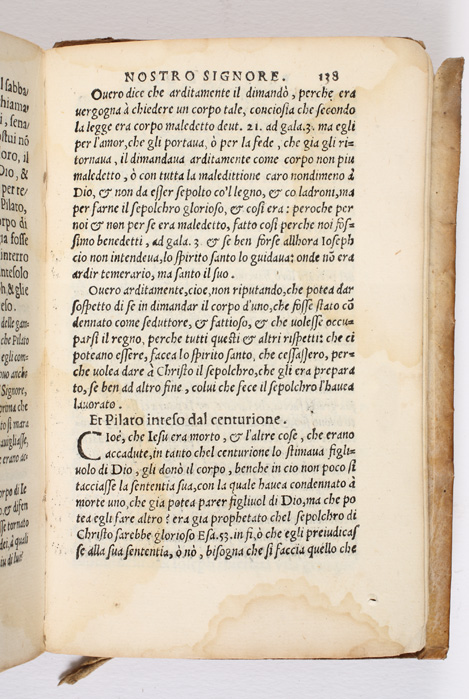 l sabba/
hiama/
i, sena/
stui nõ
oro, il
Dio, &
per te/
Pilato,
orpo di
na fosse
interro
intesolo
ph.&glie
eso.
delle gam-
che Pilato
egli com-
uo anchs
Signore,
orona che
to si mara
auigliasse,
erano ac-
orpo di Ie
o,& dissen
sse tornato
dei, à quali
iu di lui?
NOSTRO SIGNORE. 138
Ouero dice che arditamente il dimandò, perche era
vergogna à chiedere un corpo tale, conciosia che secondo
la legge era corpo maledetto deut. 21. ad gala.3. ma egli
per l'amor,che gli portaua, ò per la fede, che gia gli ri-
tornaua, il dimandaua arditamente come corpo non piu
maledetto, ò con tutta la maledittione caro nondimeno à
Dio, & non da esser sepolto co'l legno, & co ladroni,ma
per farne il sepolchro glorioso, & cosi era: peroche per
noi & non per se era maledetto, fatto cosi perche noi fos-
simo benedetti, ad gala. 3. & se ben forse allhora Ioseph
cio non intendeua,lo spirito santo lo guidaua: onde nõ era
ardir temerario, ma santo il suo.
Ouero arditamente,cioe,non riputando,che potea dar
sospetto di se in dimandar il corpo d'uno,che fosse stato cõ
dennato come seduttore, & fattioso, & che uolesse occu-
parsi il regno, perche tutti questi & altri rispetti: che ci
poteano essere, facea lo spirito santo, che cessassero, per-
che volea dare à Christo il sepolchro,che gli era prepara
to, se ben ad altro fine, colui che fece il sepolchro l'hauea
lauorato.
Et Pilato inteso dal centurione.
CIoé, che Iesu era morto, & l'altre cose, che erano
accadute,in tanto chel centurione lo stimaua figli-
uolo di Dio, gli donò il corpo, benche in cio non poco si
tacciasse la sententia sua,con la quale hauea condennato à
morte uno,che gia potea parer figliuol di Dio,ma che po
tea egli fare altro? era gia prophetato chel sepolchro di
Christo sarebbe glorioso Esa.53.in fi,ò che egli preiudicas
se alla sua sententia, ò nò, bisogna che si faccia quello che